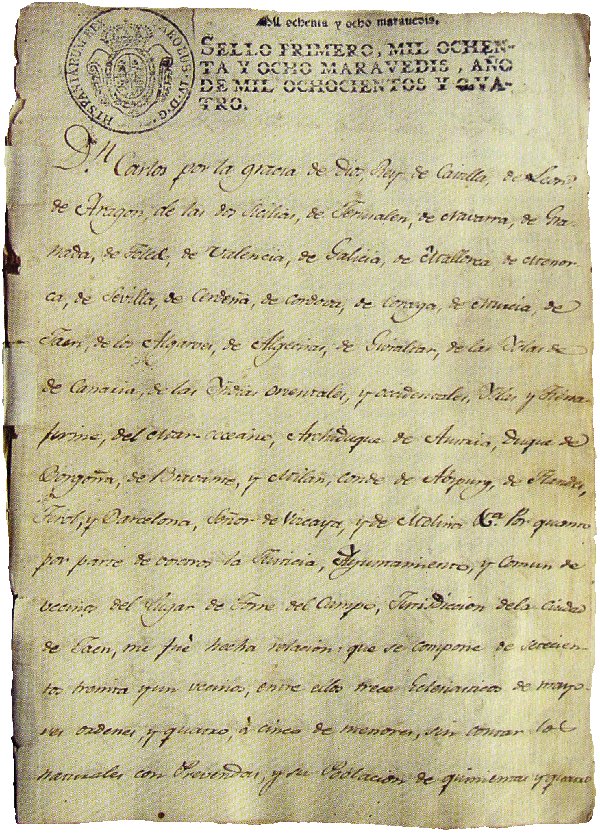 Mil ochenta y ocho maravedis.
HISPANIARUM REX CAROLUS IV D.G.
SELLO PRIMERO, MIL OCHEN-
TA Y OCHO MARAVEDIS, AÑO
DE MIL OCHOCIENTOS Y QVA-
TRO.
Dn. Carlos por la gracia de Dios, Rey de Castilla, de Leon,
de Aragon, de las dos Sicilias, de Jerusalen, de Navarra, de Gra-
nada, de Toledo, de Valencia, de Galicia, de Mallorca de Menor-
ca, de Sevilla, de Cerdeña, de Cordova, de Corcega, de Murcia, de
Jaen, de los Algarves, de Algeciras, de Gibraltar, de las Yslas de
de Canaria, de las Yndias orientales, y occidentales, Yslas y Tierra
firme, del mar occeano, Archiduque de Austria, Duque de
Borgoña, de Bravante, y Milan, Conde de Aspurg, de Flandes,
Tirol, y Barcelona, Señor de Vizcaya, y de Molina &a. Por quanto
por parte de vosotros la Justicia, Ayuntamiento, y Comun de
vecinos del Lugar de Torre del Campo, Jurisdiccion de la Ciudad
de Jaen, me fue hecha relacion: que se compone de setecien-
tos treinta y un vecinos, entre ellos trece Eclesiasticos de mayo-
res ordenes, y quatro, ò cinco de menores, sin contar los
naturales con Prevendas, y su Poblacion de quinientas y quatro